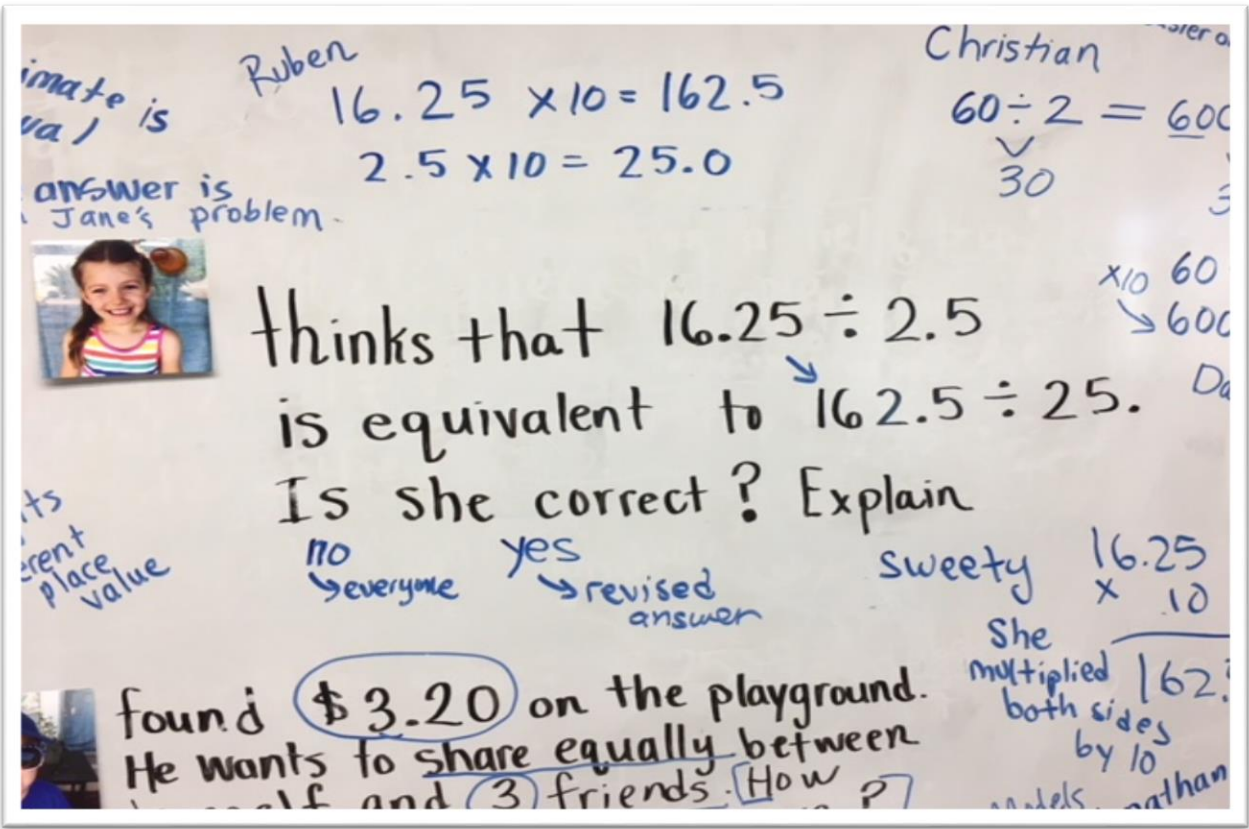 imate is
val
answer is
Jane's problem.
Ruben
16.25 x10 = 162.5
2.5 x 10 = 25.0
Christian
60 ÷ 2 = 600
30
x10 60
600
thinks that 16.25 ÷ 2.5
is equivalent to 162.5 ÷ 25.
Is she correct? Explain
no
everyone
yes
revised
answer
place
value
Sweety
16.25
x 10
162.
She
multiplied
both sides
by 10
found $3.20 on the playground.
He wants to share equally between
and 3 friends. How
?